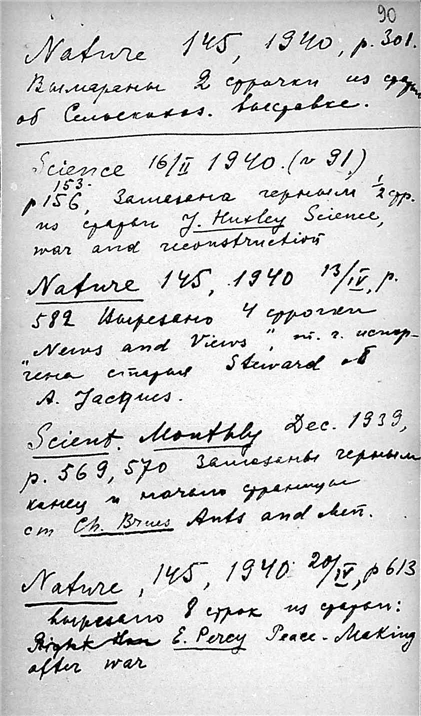 90
Nature 145, 1940, p. 301.
Вымараны 2 строчки из статьи
об Сельскохоз. выставке.
Science 16/II 1940. (v 91,)
153.
p 156, Замазана черным 1/2 стр.
из статьи J. Huxley Science,
war and reconstruction
Nature 145, 1940 13/IV, p.
582 Вырезано 4 строчки
"News and Views", т. ч. испор-
чена статья Steward об
A. Jacques.
Scient. Monthly Dec. 1939,
p. 569, 570 Замазаны черным
конец и начало страницы
ст Ch. Brues Ants and Men.
Nature, 145, 1940 20/IV, p 613
вырезано 8 строк из статьи:
Right Hon E. Percy Peace-Making
after war